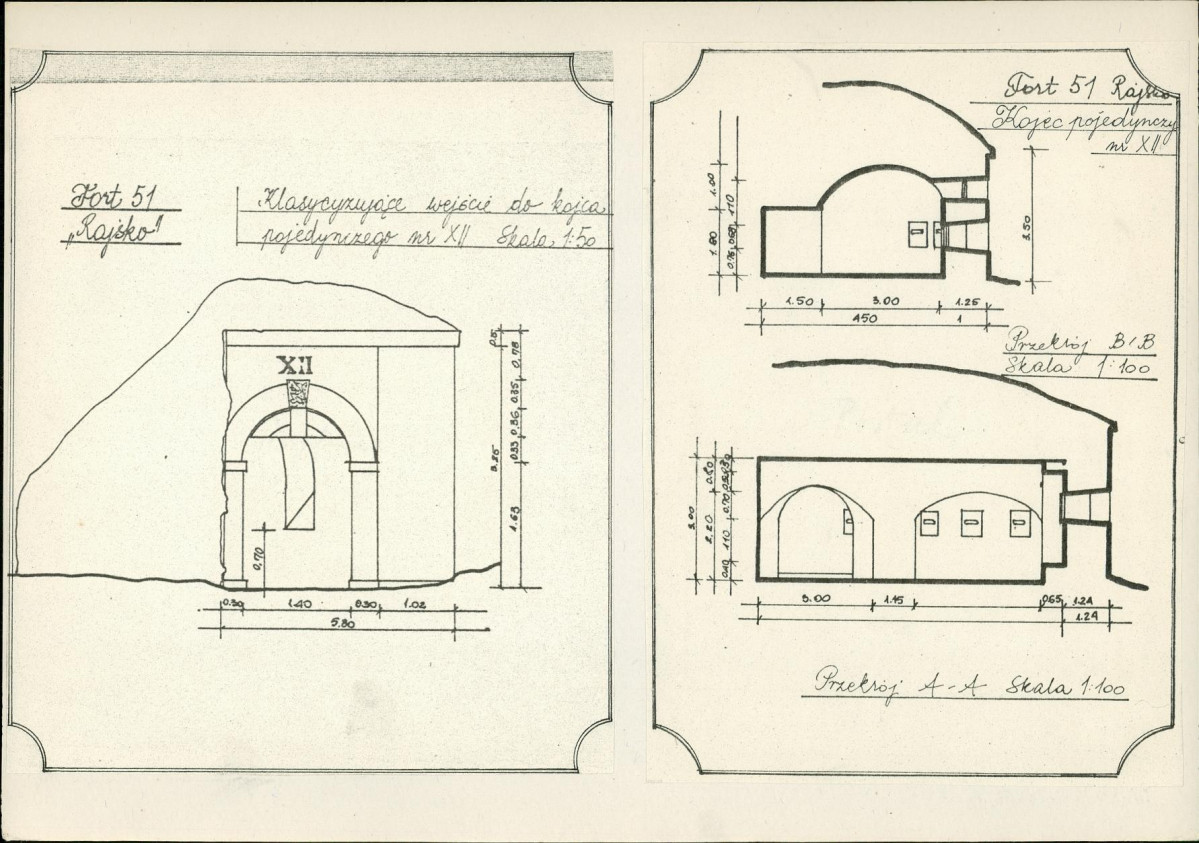 Fort 51
„Rajsko”
Klasycyzujące wejście do kojca
pojedynczego nr XII Skala 1:50
XII
0.78
0.35
0.36
0.33
1.63
3.25
0,70
0.30 1.40 0.30 1.02
5.80
Fort 51 Rajsko
Kojec pojedynczy
nr XII
1.00
1.80
1.10
0.68
0.75
3.50
1.50 3.00 1.25
450 1
Przekrój B-B
Skala 1:100
3.00
2.20
0.70
1.10
0.40
3.00 1.15 0.65 1.24
1.24
Przekrój A-A Skala 1:100